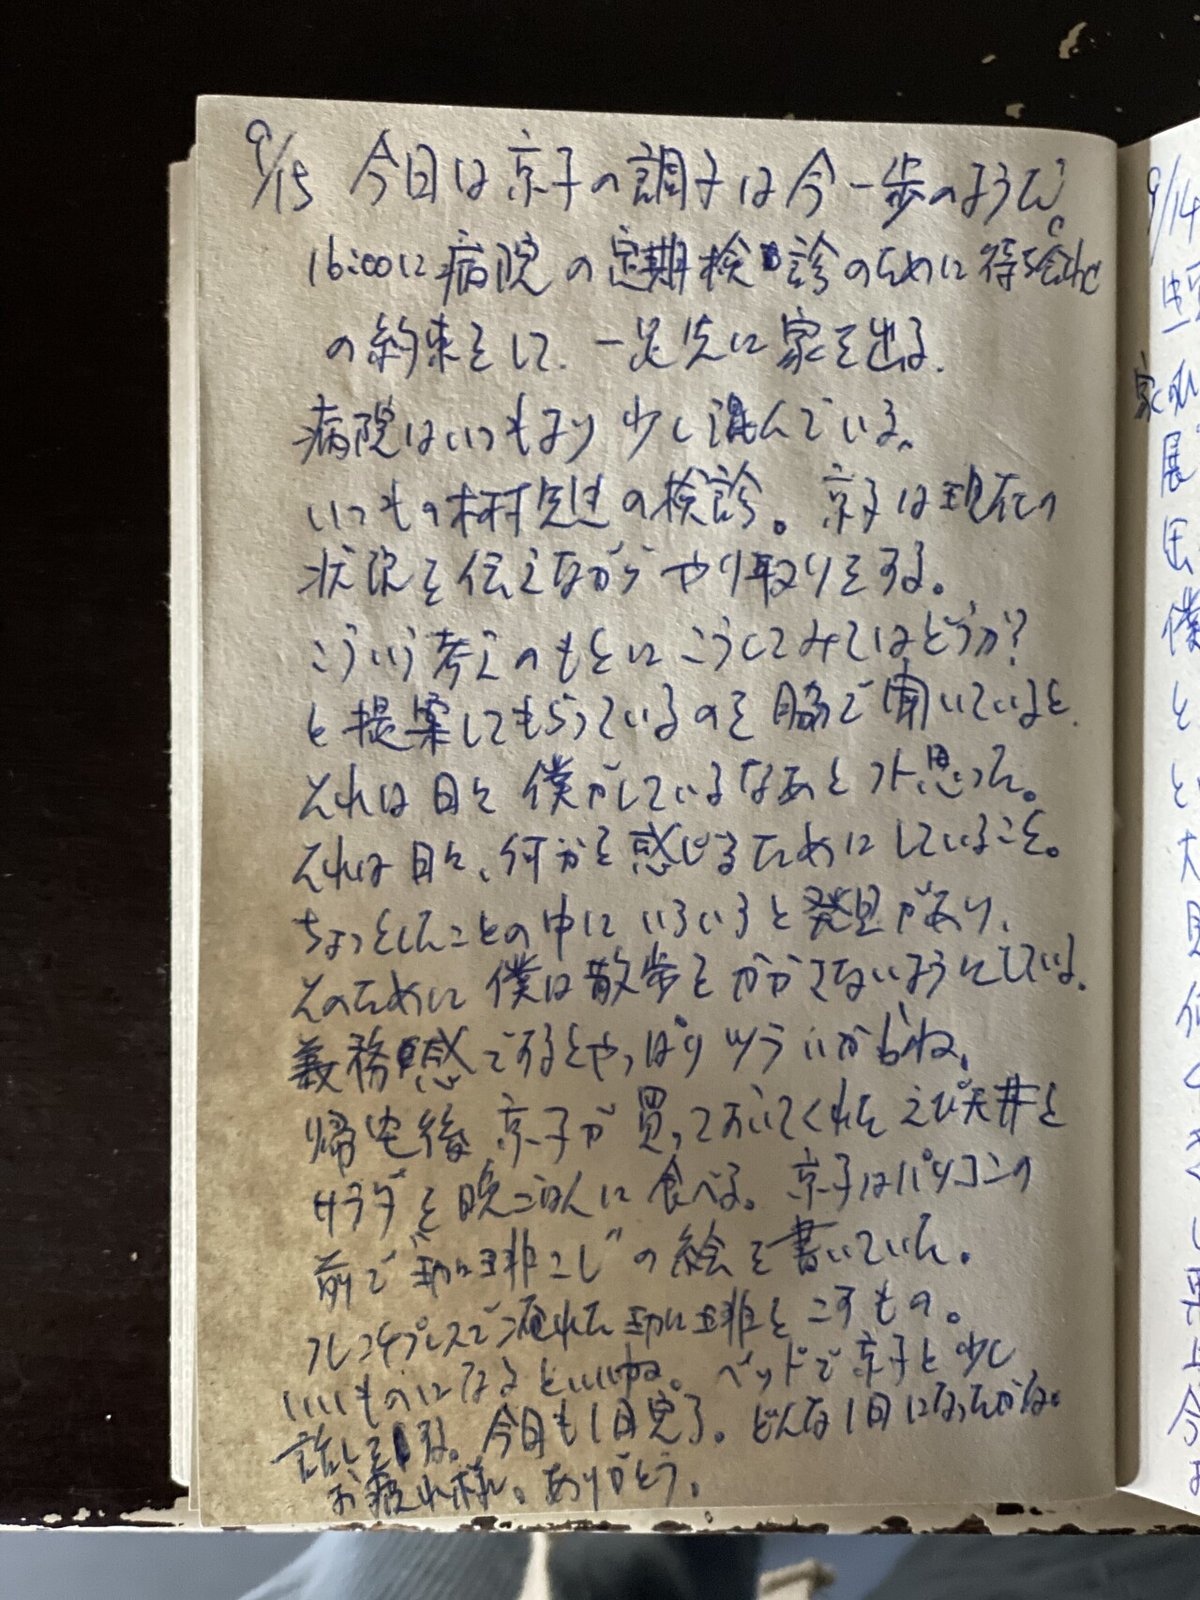 9/15 今日は京子の調子は今一歩のようだ。
16:00に病院の定期検診のために待ち合わせ
の約束をして、一足先に家を出る。
病院はいつもより少し混んでいる。
いつもの木村先生の検診。京子は現在の
状況を伝えながらやり取りをする。
こういう考えのもとにこうしてみてはどうか?
と提案してもらっているのを脇で聞いていると、
それは日々僕がしているなあとふと思った。
それは日々、何かを感じるためにしていること。
ちょっとしたことの中にいろいろと発見があり、
そのために僕は散歩をかかさないようにしている。
義務感でするとやっぱりツラいかもね。
帰宅後京子が買っておいてくれたえび天丼と
サラダを晩ごはんに食べる。京子はパソコンの
前で"珈琲こし"の絵を書いていた。
フレンチプレスで淹れた珈琲をこすもの。
いいものになるといいね。ベッドで京子と少し
話しをする。今日も1日完了。どんな1日になったかな。
お疲れ様。ありがとう。
9/14
家の
展
僕
と
と
大
今